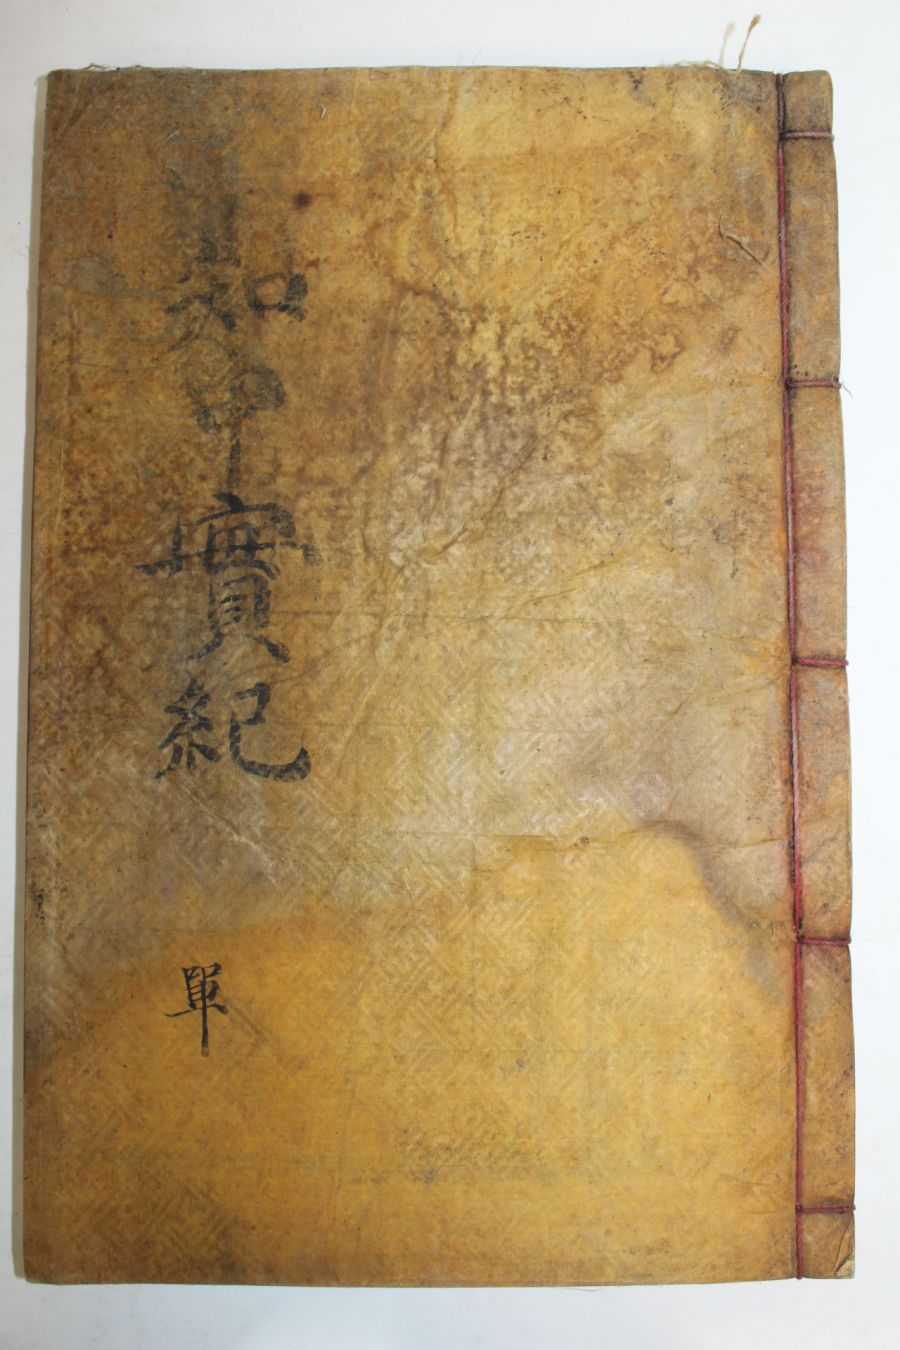 知中實紀
單